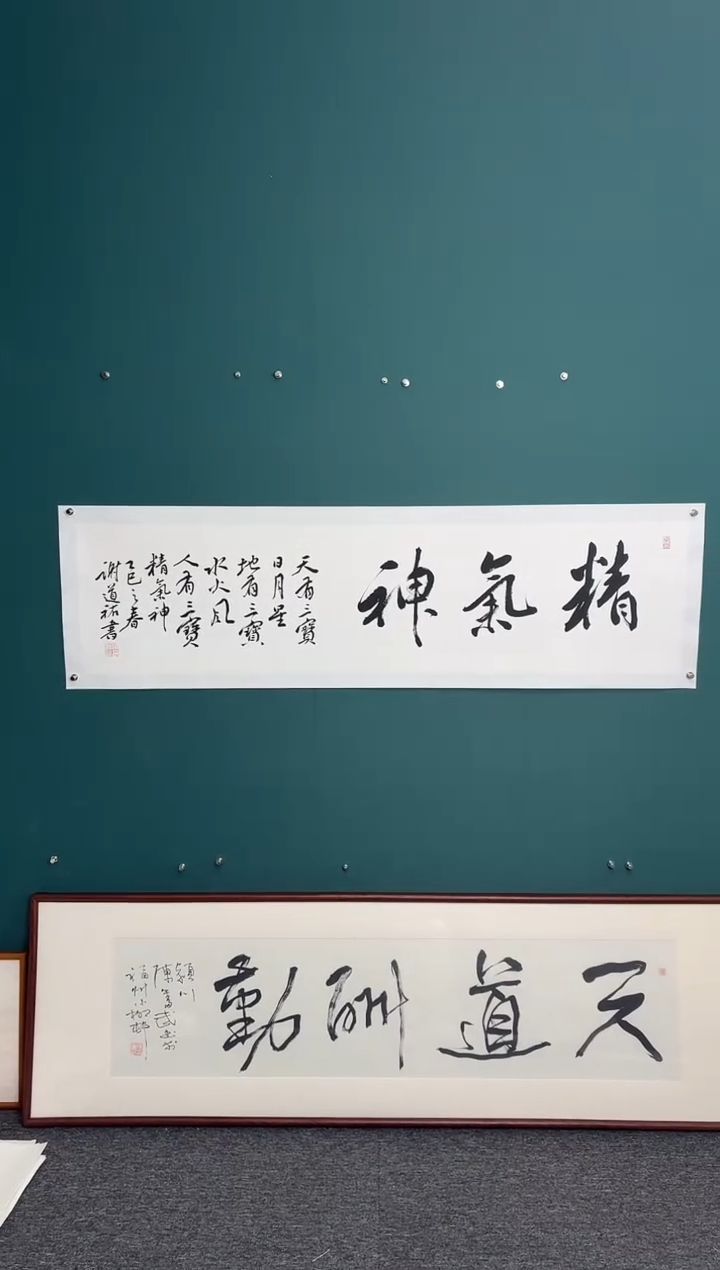 精氣神
天有三寶
日月星
地有三寶
水火風
人有三寶
精氣神
乙巳之春
谢道祐書
天道酬勤
潁川
陳奮武書於
福州小柳邨